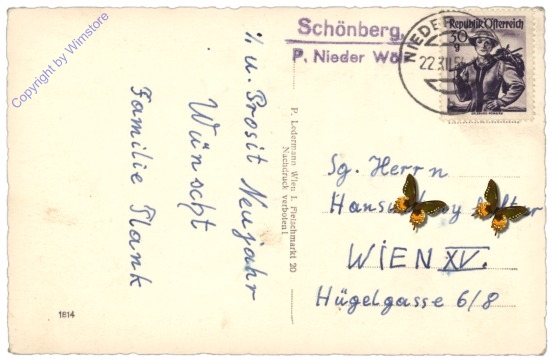 Copyright by Wimstore
Schönberg,
P. Nieder Wöl
NIEDER
22.XII.5
Republik Österreich
30
g
½ u. Prosit Neujahr
Wünscht
Familie Plank
P. Ledermann Wien I, Fleischmarkt 20
Nachdruck verboten!
Sg. Herrn
WIEN XV.
Hügelgasse 6/8
1814